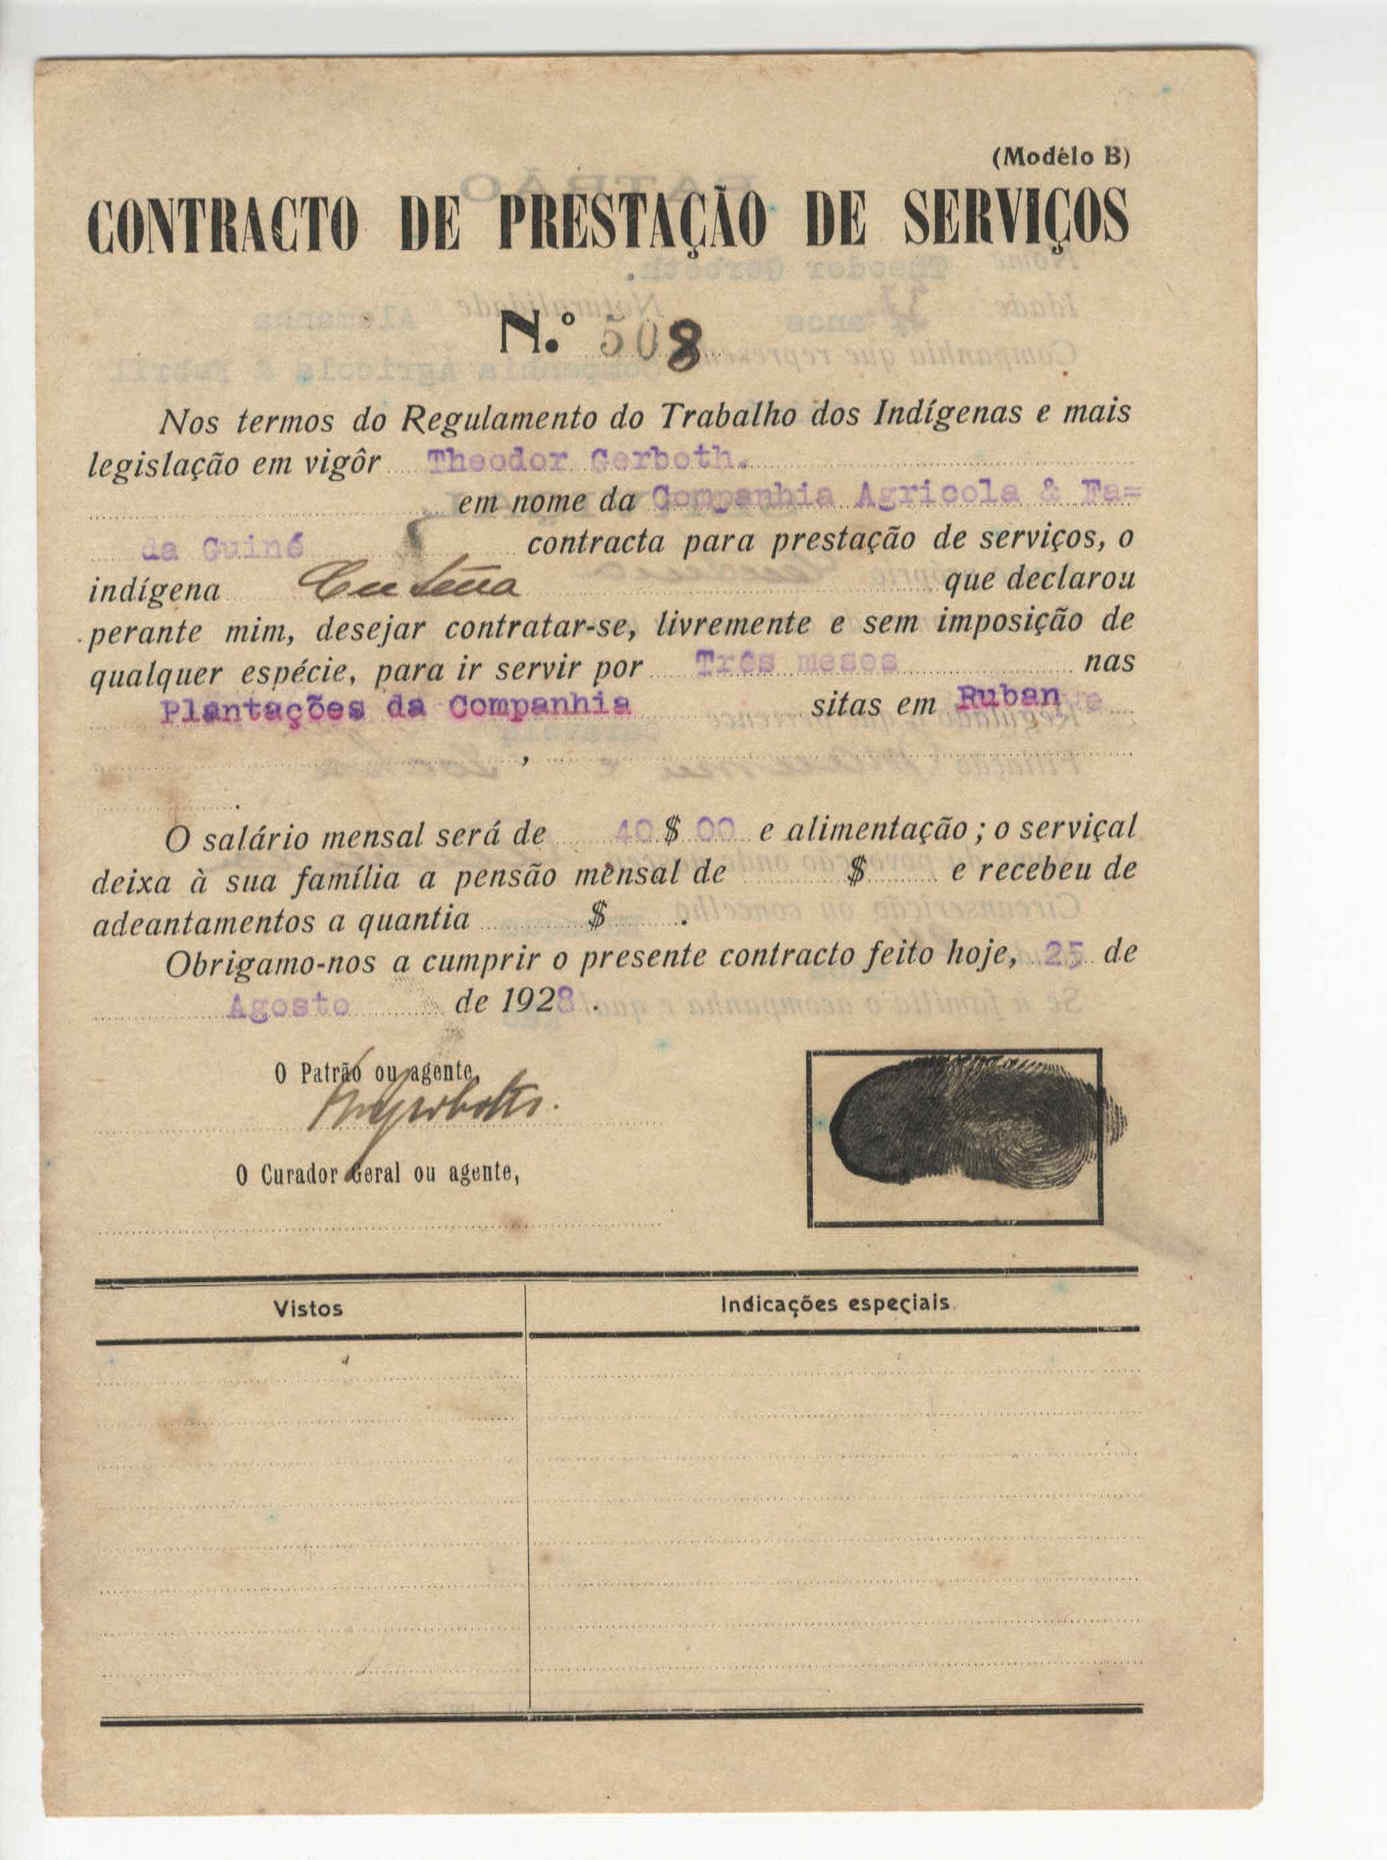 (Modêlo B)
CONTRACTO DE PRESTAÇÃO DE SERVIÇOS
N.º 508
Nos termos do Regulamento do Trabalho dos Indígenas e mais
legislação em vigôr Theodor Gerboth.
em nome da Companhia Agricola & Fa=
da Guiné contracta para prestação de serviços, o
indígena que declarou
perante mim, desejar contratar-se, livremente e sem imposição de
qualquer espécie, para ir servir por Três meses nas
Plantações da Companhia sitas em Ruban
O salário mensal será de 40 $ 00 e alimentação; o serviçal
deixa à sua família a pensão mensal de $ e recebeu de
adeantamentos a quantia $ .
Obrigamo-nos a cumprir o presente contracto feito hoje, 25 de
Agosto de 1928.
O Patrão ou agente,
O Curador Geral ou agente,
Vistos Indicações especiais